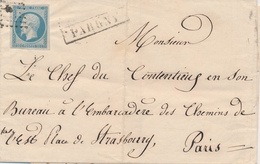 PARGNY
Monsieur
Le Chef du Contentieux en son
Bureau à l'Embarcadère des Chemins de
l'Est Place de Strasbourg,
Paris